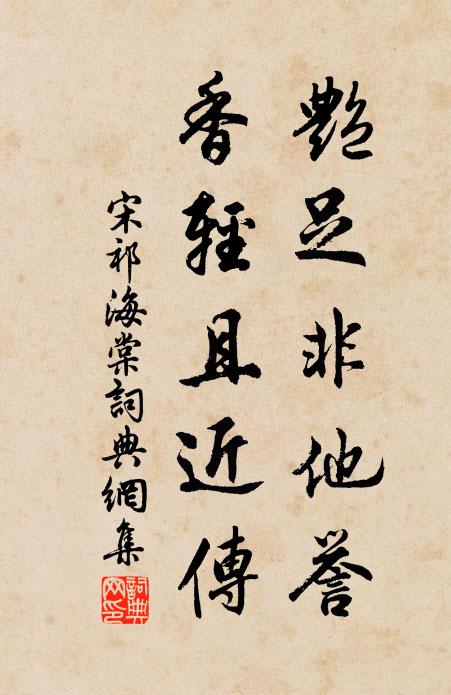 艷足非他譽
香輕且近傳
宋祁海棠詞典網集